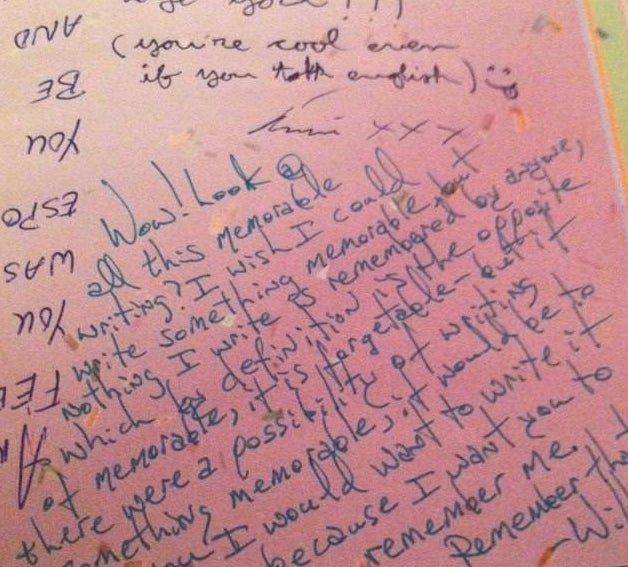 (you're cool even
if you talk english)
xxx
Wow! Look @
all this memorable
writing? I wish I could
write something memorable, but
nothing I write is remembered by anyone,
which by definition is the opposite
of memorable, it is forgetable - but if
there were a possibility of writing
something memorable, it would be to
you I would want to write it
because I want you to
remember me.
Remember that
-Will
AND
BE
YOU
ESPO
WAS
YOU